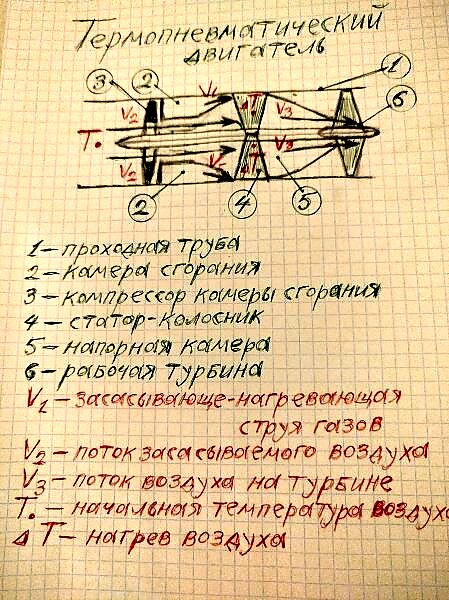 Термопневматический
двигатель
3 2 V1 1
V2 ΔT V3 6
T.
V2 V1 ΔT V3
2 4 5
1 – проходная труба
2 – камера сгорания
3 – компрессор камеры сгорания
4 – статор-колосник
5 – напорная камера
6 – рабочая турбина
V1 – засасывающе-нагревающая
струя газов
V2 – поток засасываемого воздуха
V3 – поток воздуха на турбине
T. – начальная температура воздуха
Δ T – нагрев воздуха